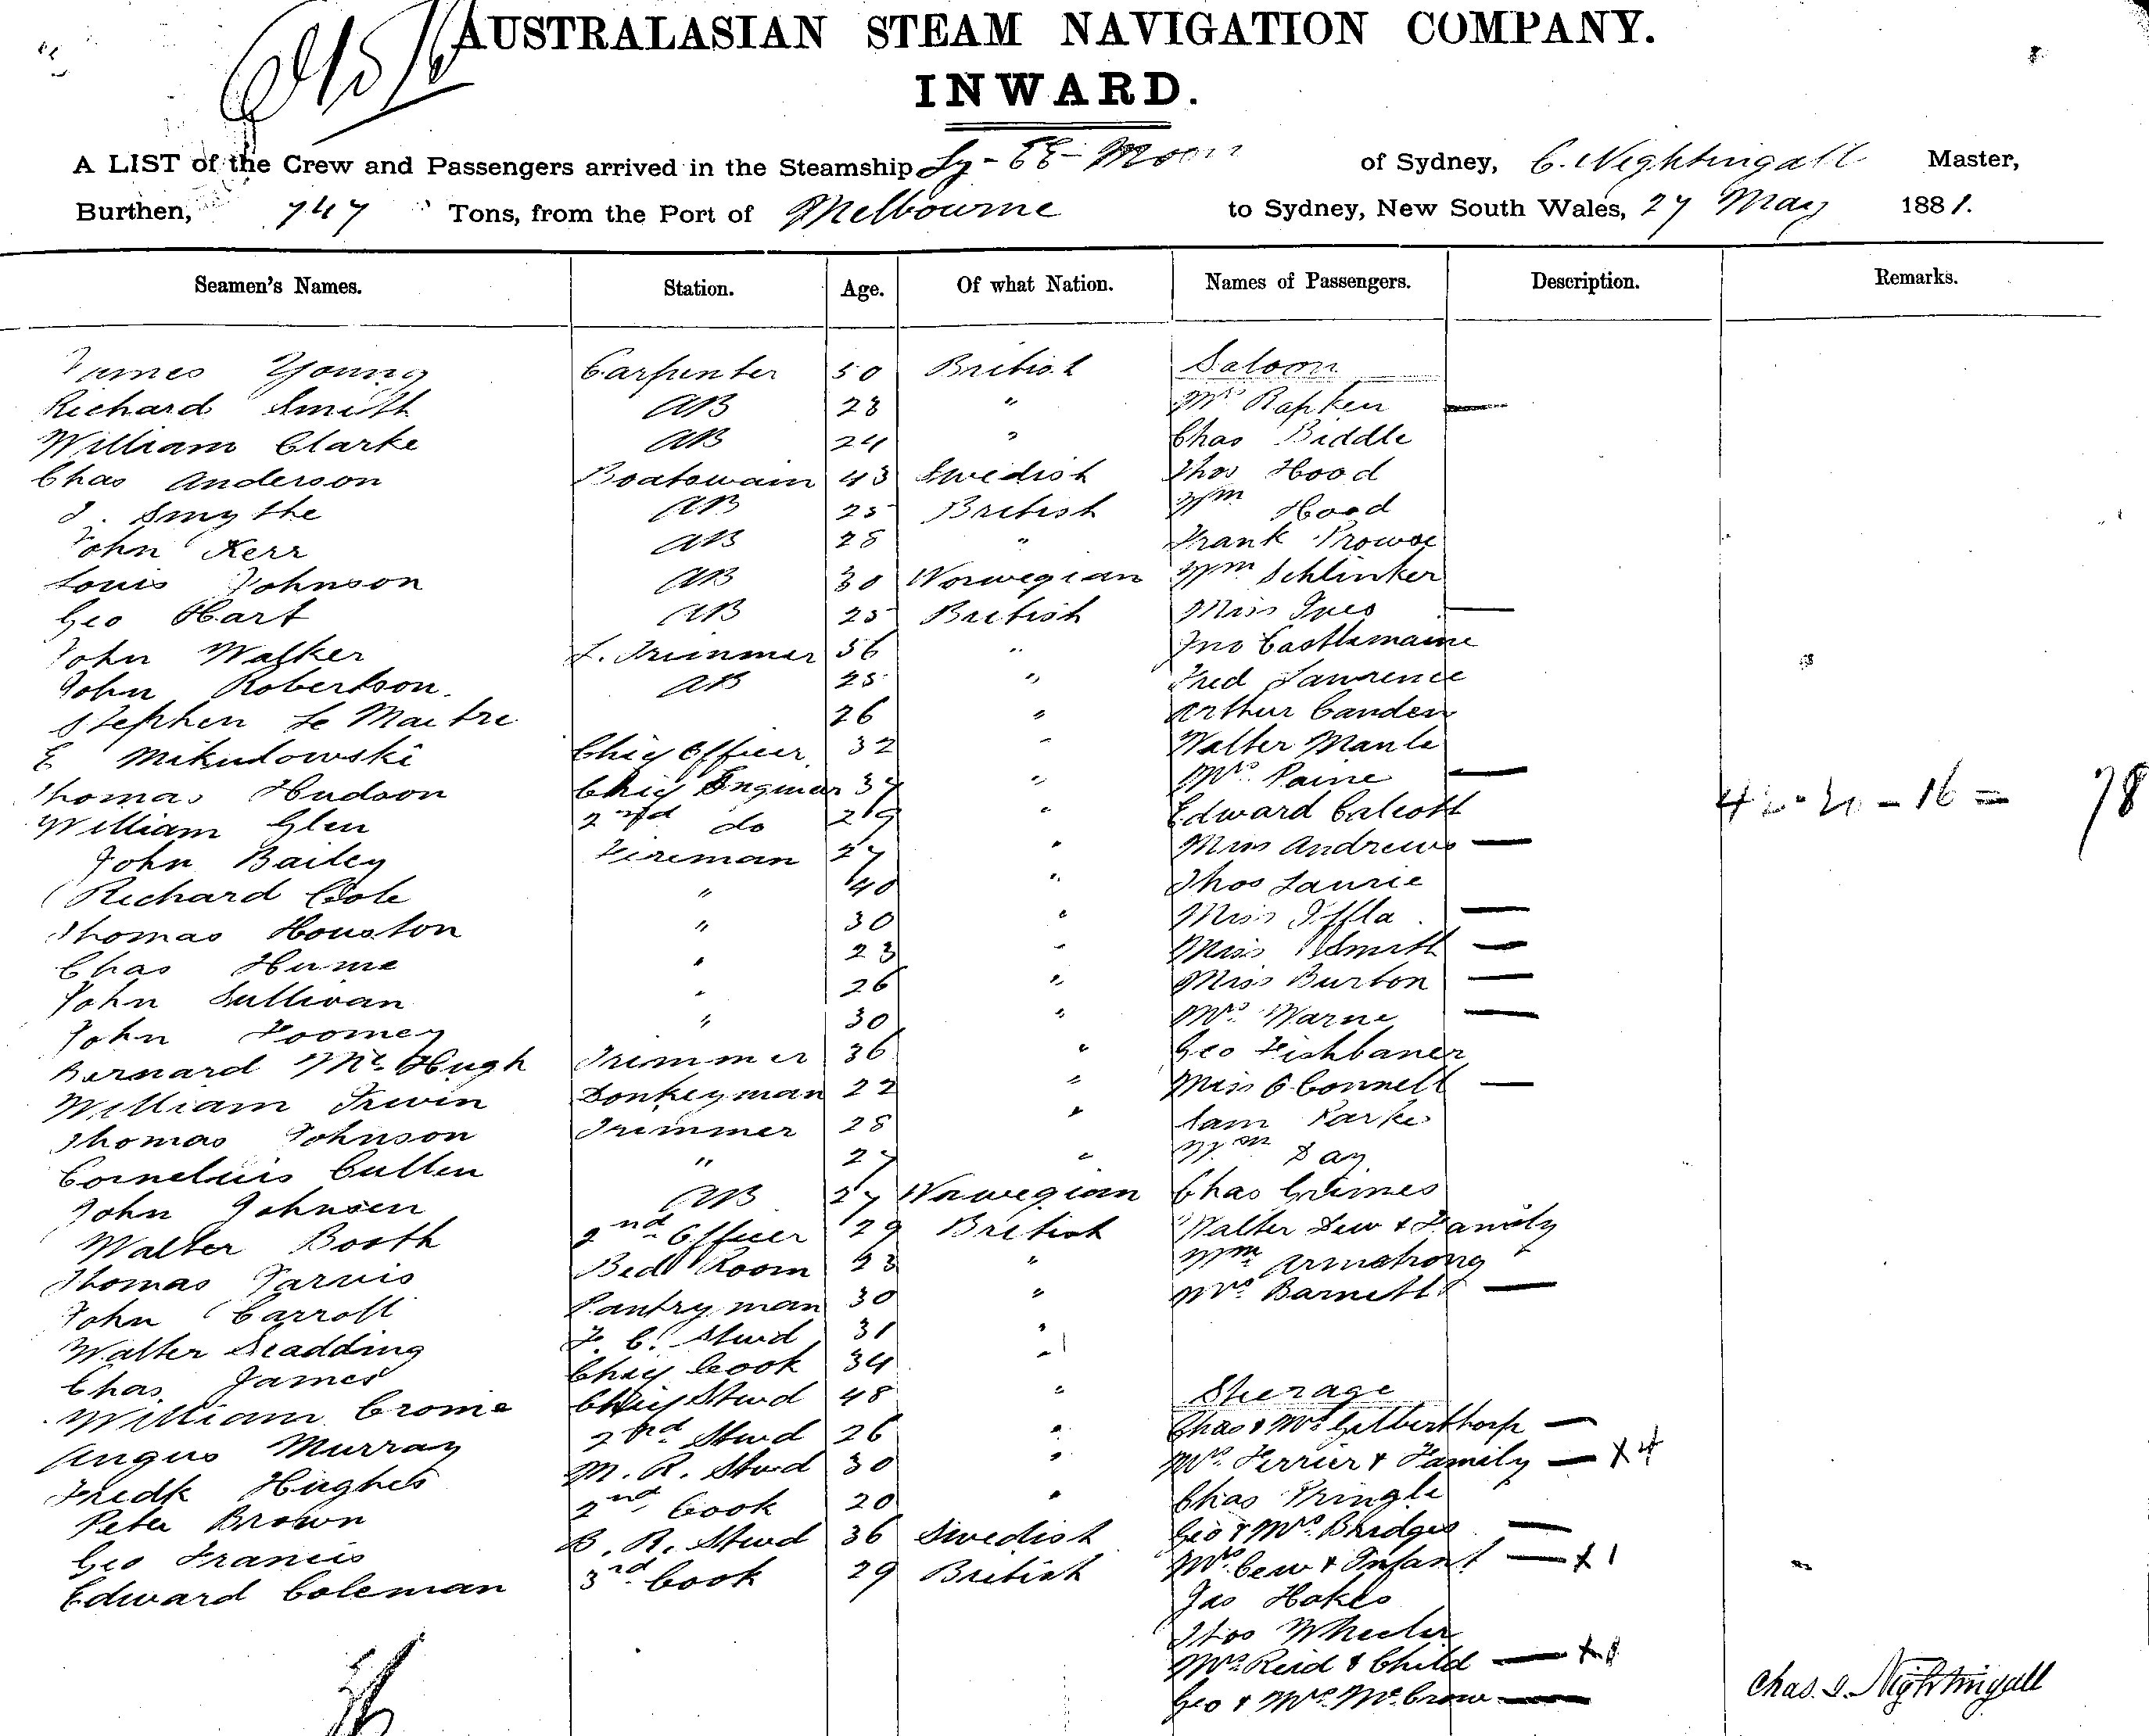 AUSTRALASIAN STEAM NAVIGATION COMPANY.
INWARD.
A LIST of the Crew and Passengers arrived in the Steamship Ly-EE-Moon of Sydney, C. Nightingall Master,
Burthen, 747 Tons, from the Port of Melbourne to Sydney, New South Wales, 27 May 1881.
Seamen's Names. Station. Age. Of what Nation. Names of Passengers. Description. Remarks.
James Young Carpenter 50 British Saloon
Richard Smith AB 28 " Mrs Rapken —
William Clarke AB 24 " Chas Biddle
Chas Anderson Boatswain 43 Swedish Thos Hood
J. Smythe AB 25 British Wm Hood
John Kerr AB 28 " Frank Prowse
Louis Johnson AB 30 Norwegian Wm Schlinker
Geo Hart AB 25 British Miss Ives —
John Walker L. Trimmer 36 " Jno Castlemaine
John Robertson. AB 25 " Fred Lawrence
Stephen Le Maitre 26 " Arthur Canden
E Mikulowski Chief Officer 32 " Walter Mantle
Thomas Hudson Chief Engineer 37 " Mrs. Paine —
William Glen 2nd do 29 " Edward Calcott
John Bailey Fireman 27 " Miss Andrews —
Richard Cole " 40 " Thos Laurie
Thomas Houston " 30 " Miss Iffla —
Chas Hume " 23 " Miss Smith —
John Sullivan " 26 " Miss Burton —
John Toomey " 30 " Mrs. Warne —
Bernard McHugh Trimmer 36 " Geo Fishbaner
William Irwin Donkeyman 22 " Miss O'Connell —
Thomas Johnson Trimmer 28 " Sam Parkes
Cornelius Cullen " 27 " Wm Day
John Johnsen AB 27 Norwegian Chas Grimes
Walter Booth 2nd Officer 29 British Walter Dew & Family
Thomas Jarvis Bed Room 23 " Wm Armstrong
John Carroll Pantryman 30 " Mrs. Barnett —
Walter Scadding F. C. Stwd 31 "
Chas James Chief Cook 34 "
William Crome Chief Stwd 48 " Steerage
Angus Murray 2nd Stwd 26 " Chas & Mrs Gilberthorp —
Fredk Hughes M. R. Stwd 30 " Mrs. Ferrier & Family — x 4
Peter Brown 2nd Cook 20 " Chas Pringle
Geo Francis B. R. Stwd 36 Swedish Geo & Mrs. Bridges —
Edward Coleman 3rd Cook 29 British Mrs. Cew & Infant — x 1
Jas Hakes
Thos Wheeler
Mrs. Reid & Child — x 1
Geo & Mrs. McCrow —
16 = 78
Chas. J. Nightingall